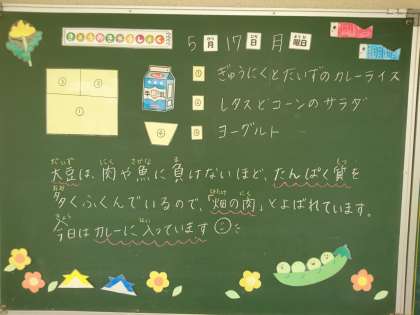 きょうのきゅうしょく
5月17日月曜日
① ぎゅうにくとだいずのカレーライス
② レタスとコーンのサラダ
③ ヨーグルト
③ ②
①
牛乳
④
大豆は、肉や魚に負けないほど、たんぱく質を
多くふくんでいるので、「畑の肉」とよばれています。
今日はカレーに入っています